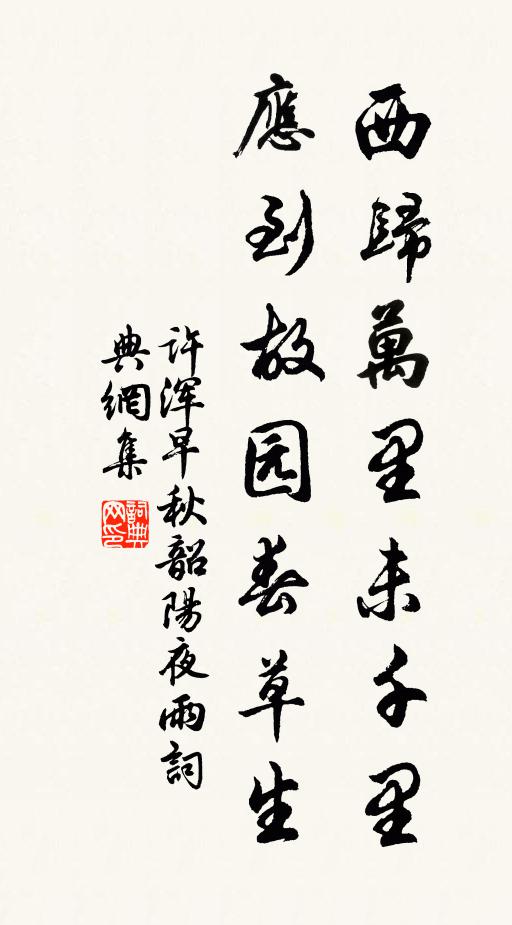 西歸萬里未千里
應到故园春草生
許浑早秋韶陽夜雨詞
典網集
詞典
网印